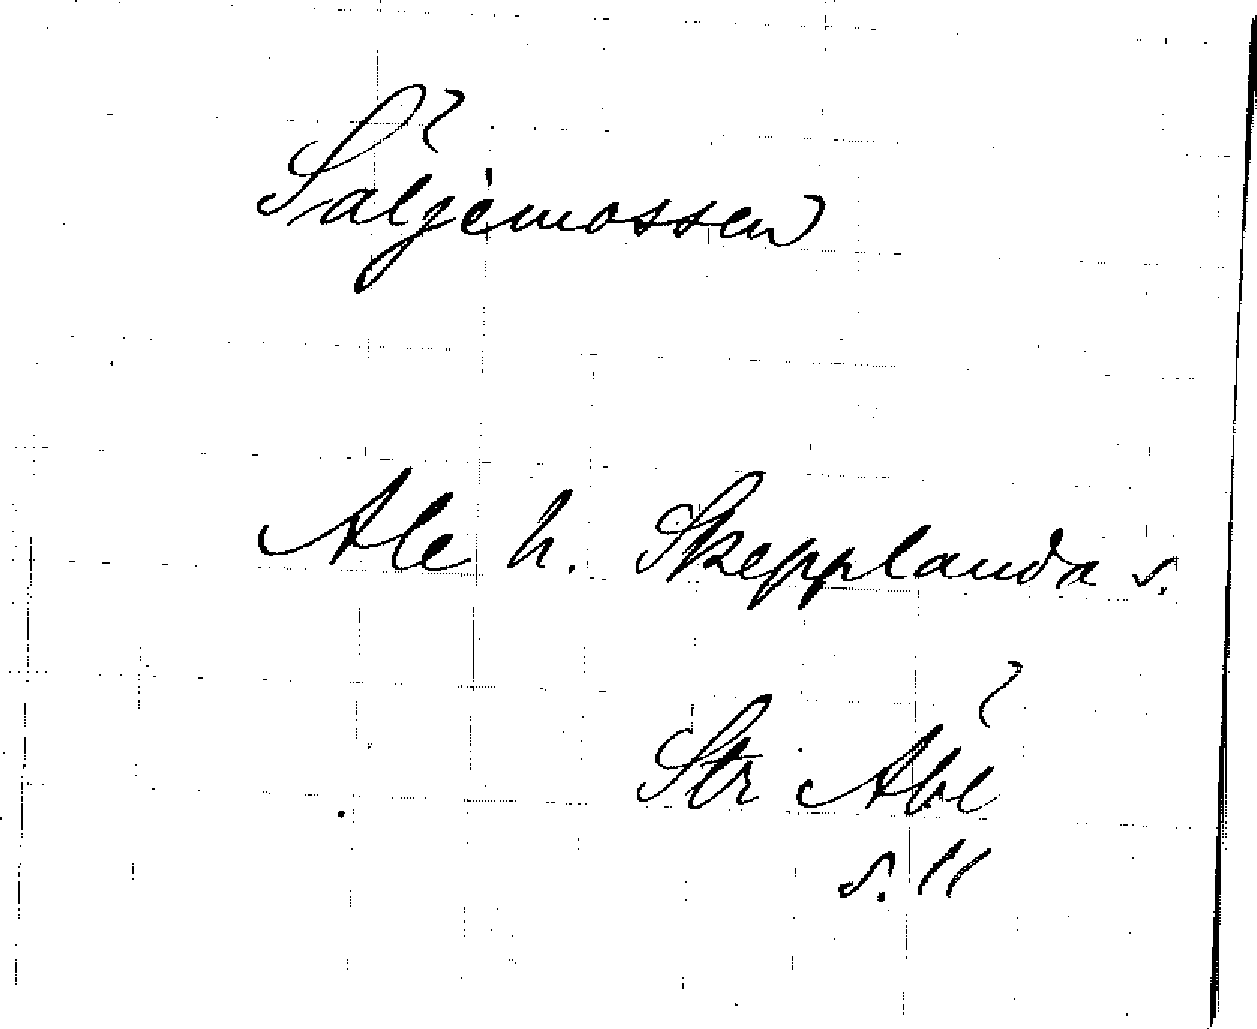 Säljemossen
Ale h. Skepplanda s.
Str
s. 11